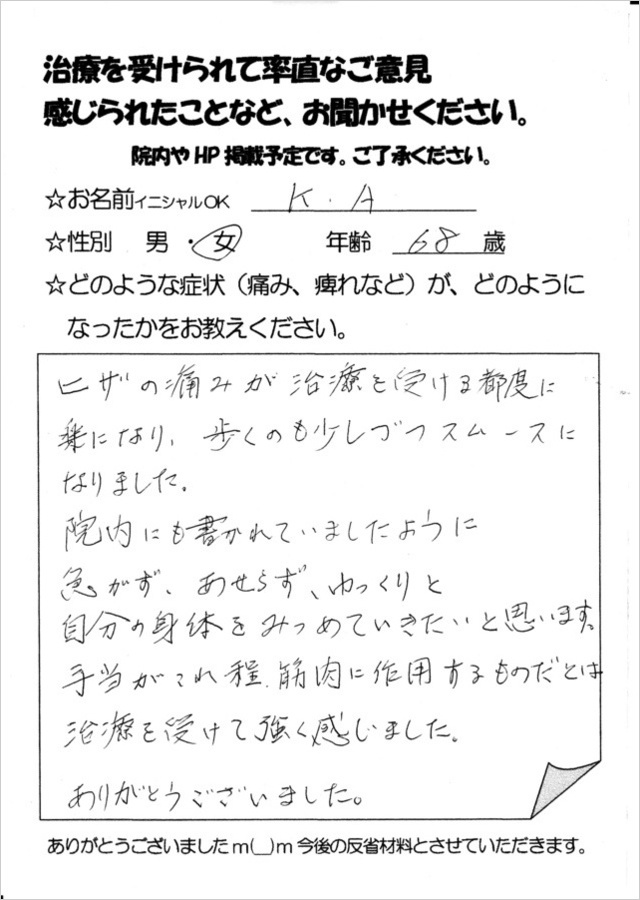 治療を受けられて率直なご意見
感じられたことなど、お聞かせください。
院内やHP掲載予定です。ご了承ください。
☆お名前イニシャルOK K.A
☆性別 男・女 年齢 68 歳
☆どのような症状（痛み、痺れなど）が、どのように
なったかをお教えください。
ヒザの痛みが治療を受ける都度に
楽になり、歩くのも少しづつスムースに
なりました。
院内にも書かれていましたように
急がず、あせらず、ゆっくりと
自分の身体をみつめていきたいと思います。
手当がこれ程、筋肉に作用するものだとは
治療を受けて強く感じました。
ありがとうございました。
ありがとうございましたm(__)m今後の反省材料とさせていただきます。